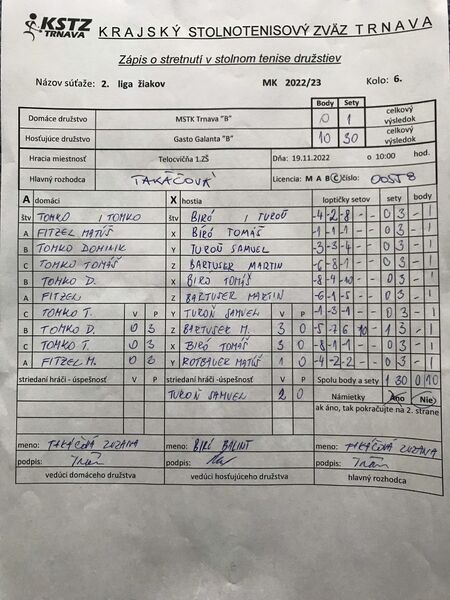 KSTZ TRNAVA KRAJSKÝ STOLNOTENISOVÝ ZVÄZ TRNAVA
Zápis o stretnutí v stolnom tenise družstiev
Názov súťaže: 2. liga žiakov MK 2022/23 Kolo: 6.
Body Sety
Domáce družstvo MSTK Trnava "B" 0 1 celkový výsledok
Hosťujúce družstvo Gasto Galanta "B" 10 30 celkový výsledok
Hracia miestnosť Telocvičňa 1.ZŠ Dňa: 19.11.2022 o 10:00 hod.
Hlavný rozhodca TAKÁČOVÁ Licencia: M A B C číslo:
A domáci X hostia loptičky setov sety body
štv TOMKO / TOMKO štv BIRÓ / TUROŇ -4 -2 -8 - - 0 3 - 1
A FITZEL MATÚŠ X BIRÓ TOMÁŠ -1 -1 -1 - - 0 3 - 1
B TOMKO DOMINIK Y TUROŇ SAMUEL -3 -3 -4 - - 0 3 - 1
C TOMKO TOMÁŠ Z BARTUSER MARTIN -6 -8 -1 - - 0 3 - 1
B TOMKO D. X BIRÓ TOMÁŠ -8 -4 -10 - - 0 3 - 1
A FITZEL Z BARTUSER MARTIN -6 -1 -5 - - 0 3 - 1
C TOMKO T. V P Y TUROŇ SAMUEL V P -1 -3 -1 - - 0 3 - 1
B TOMKO D. 0 3 Z BARTUSER M. 3 0 -5 -7 6 10 - 1 3 - 1
C TOMKO T. 0 3 X BIRÓ TOMÁŠ 3 0 -8 -1 -1 - - 0 3 - 1
A FITZEL M. 0 3 Y ROTBAUER MATÚŠ 1 0 -4 -2 -2 - - 0 3 - 1
striedaní hráči - úspešnosť V P striedaní hráči -úspešnosť V P Spolu body a sety 1 30 0 10
TUROŇ SAMUEL 2 0 Námietky Áno Nie
ak áno, tak pokračujte na 2. strane
meno: TAKÁČOVÁ ZUZANA meno: BIRÓ BALINT meno: TAKÁČOVÁ ZUZANA
podpis: podpis: podpis:
vedúci domáceho družstva vedúci hosťujúceho družstva hlavný rozhodca